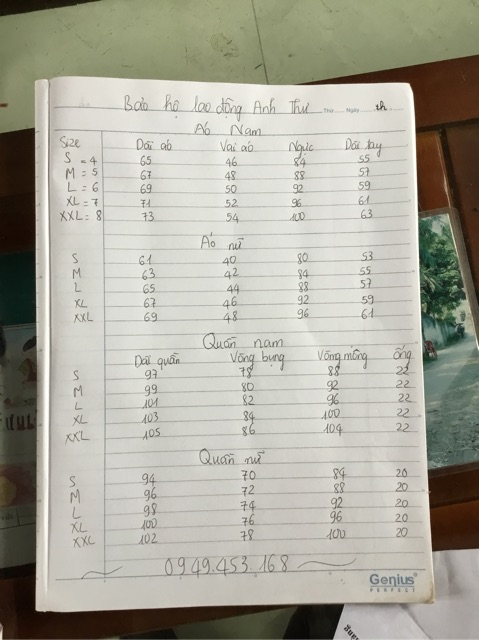 Bảo hộ lao động Anh Thư Thứ Ngày
Áo Nam
Size Dài áo Vai áo Ngực Dài tay
S = 4 65 46 84 55
M = 5 67 48 88 57
L = 6 69 50 92 59
XL = 7 71 52 96 61
XXL = 8 73 54 100 63
Áo nữ
S 61 40 80 53
M 63 42 84 55
L 65 44 88 57
XL 67 46 92 59
XXL 69 48 96 61
Quần nam
Dài quần Vòng bụng Vòng mông ống
S 97 78 88 22
M 99 80 92 22
L 101 82 96 22
XL 103 84 100 22
XXL 105 86 104 22
Quần nữ
S 94 70 84 20
M 96 72 88 20
L 98 74 92 20
XL 100 76 96 20
XXL 102 78 100 20
0949.453.168
Genius
PERFECT